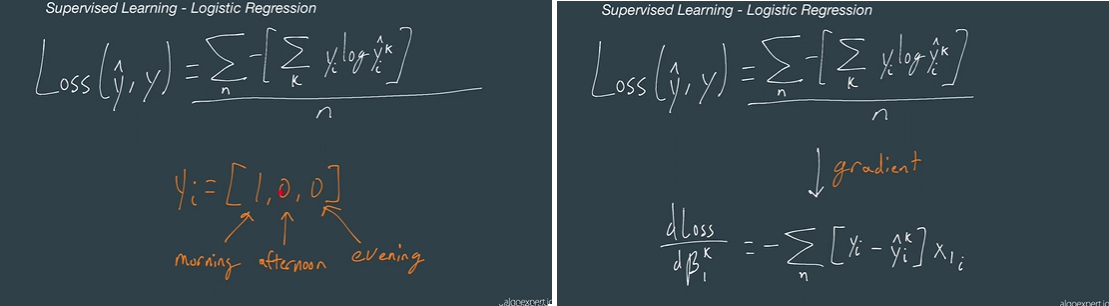 Supervised Learning - Logistic Regression
Loss(ŷ, y) = Σ_n -[Σ_K y_i log ŷ_i^K] / n
y_i = [1, 0, 0]
morning afternoon evening
algoexpert.io
Supervised Learning - Logistic Regression
Loss(ŷ, y) = Σ_n -[Σ_K y_i log ŷ_i^K] / n
gradient
dLoss / dβ_1^K = - Σ_n [y_i - ŷ_i^K] x_1_i
algoexpert.io